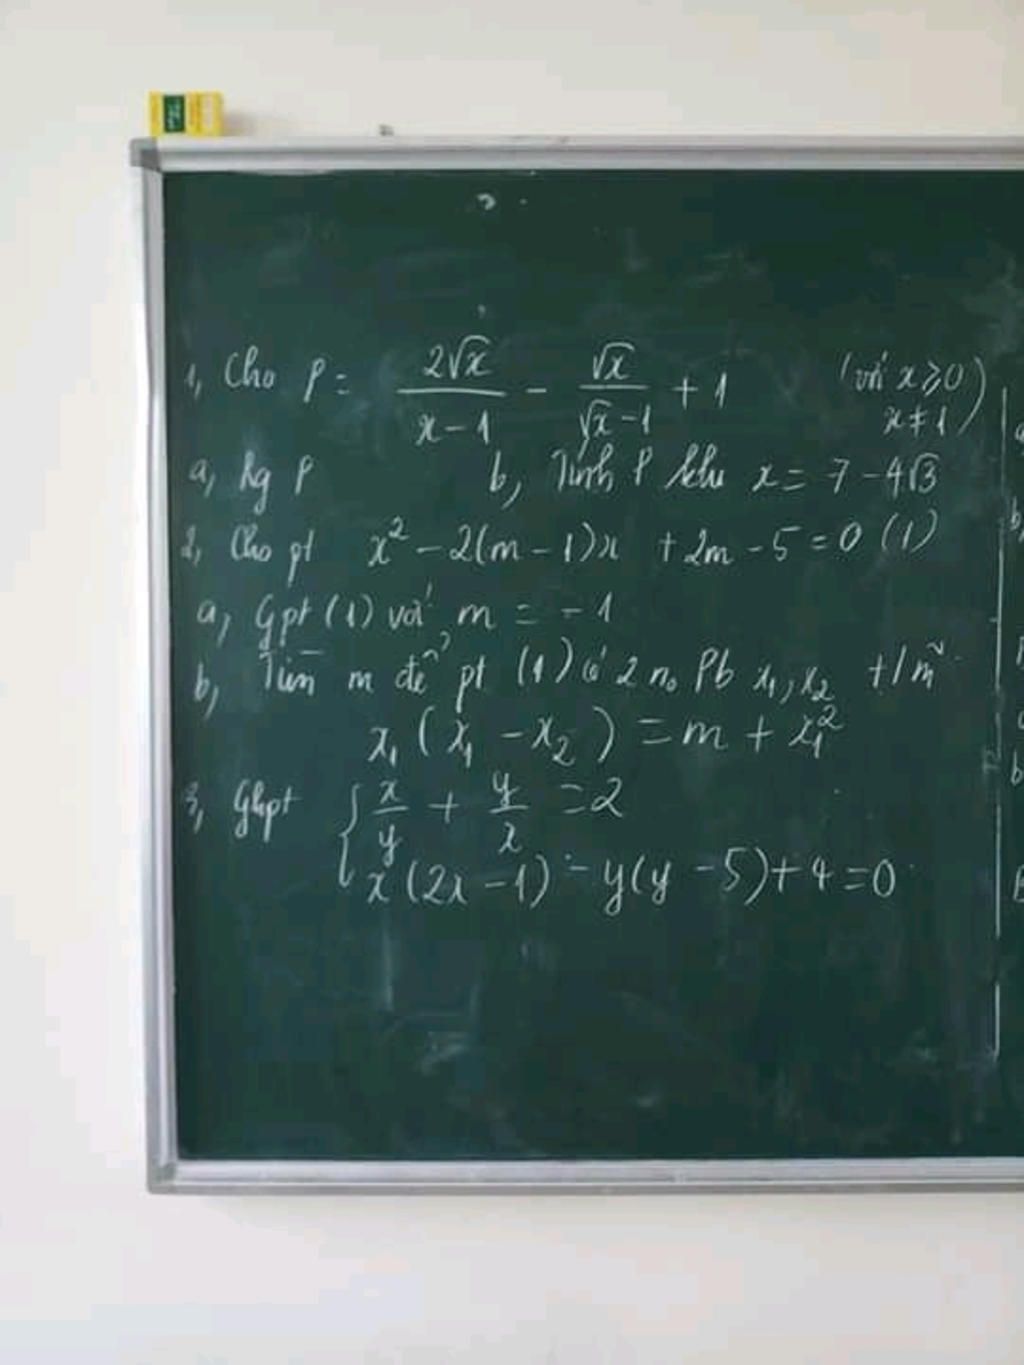 1, Cho P = 2√x / x - 1 - √x / √x - 1 + 1 (với x ≥ 0 x ≠ 1)
a, Rg P b, Tính P khi x = 7 - 4√3
2, Cho pt x² - 2(m - 1)x + 2m - 5 = 0 (1)
a, Gpt (1) với m = -1
b, Tìm m để pt (1) có 2 no Pb x₁, x₂ t/m
x₁ (x₁ - x₂) = m + x₁²
3, Ghpt { x/y + y/x = 2
x(2x - 1) - y(y - 5) + 4 = 0